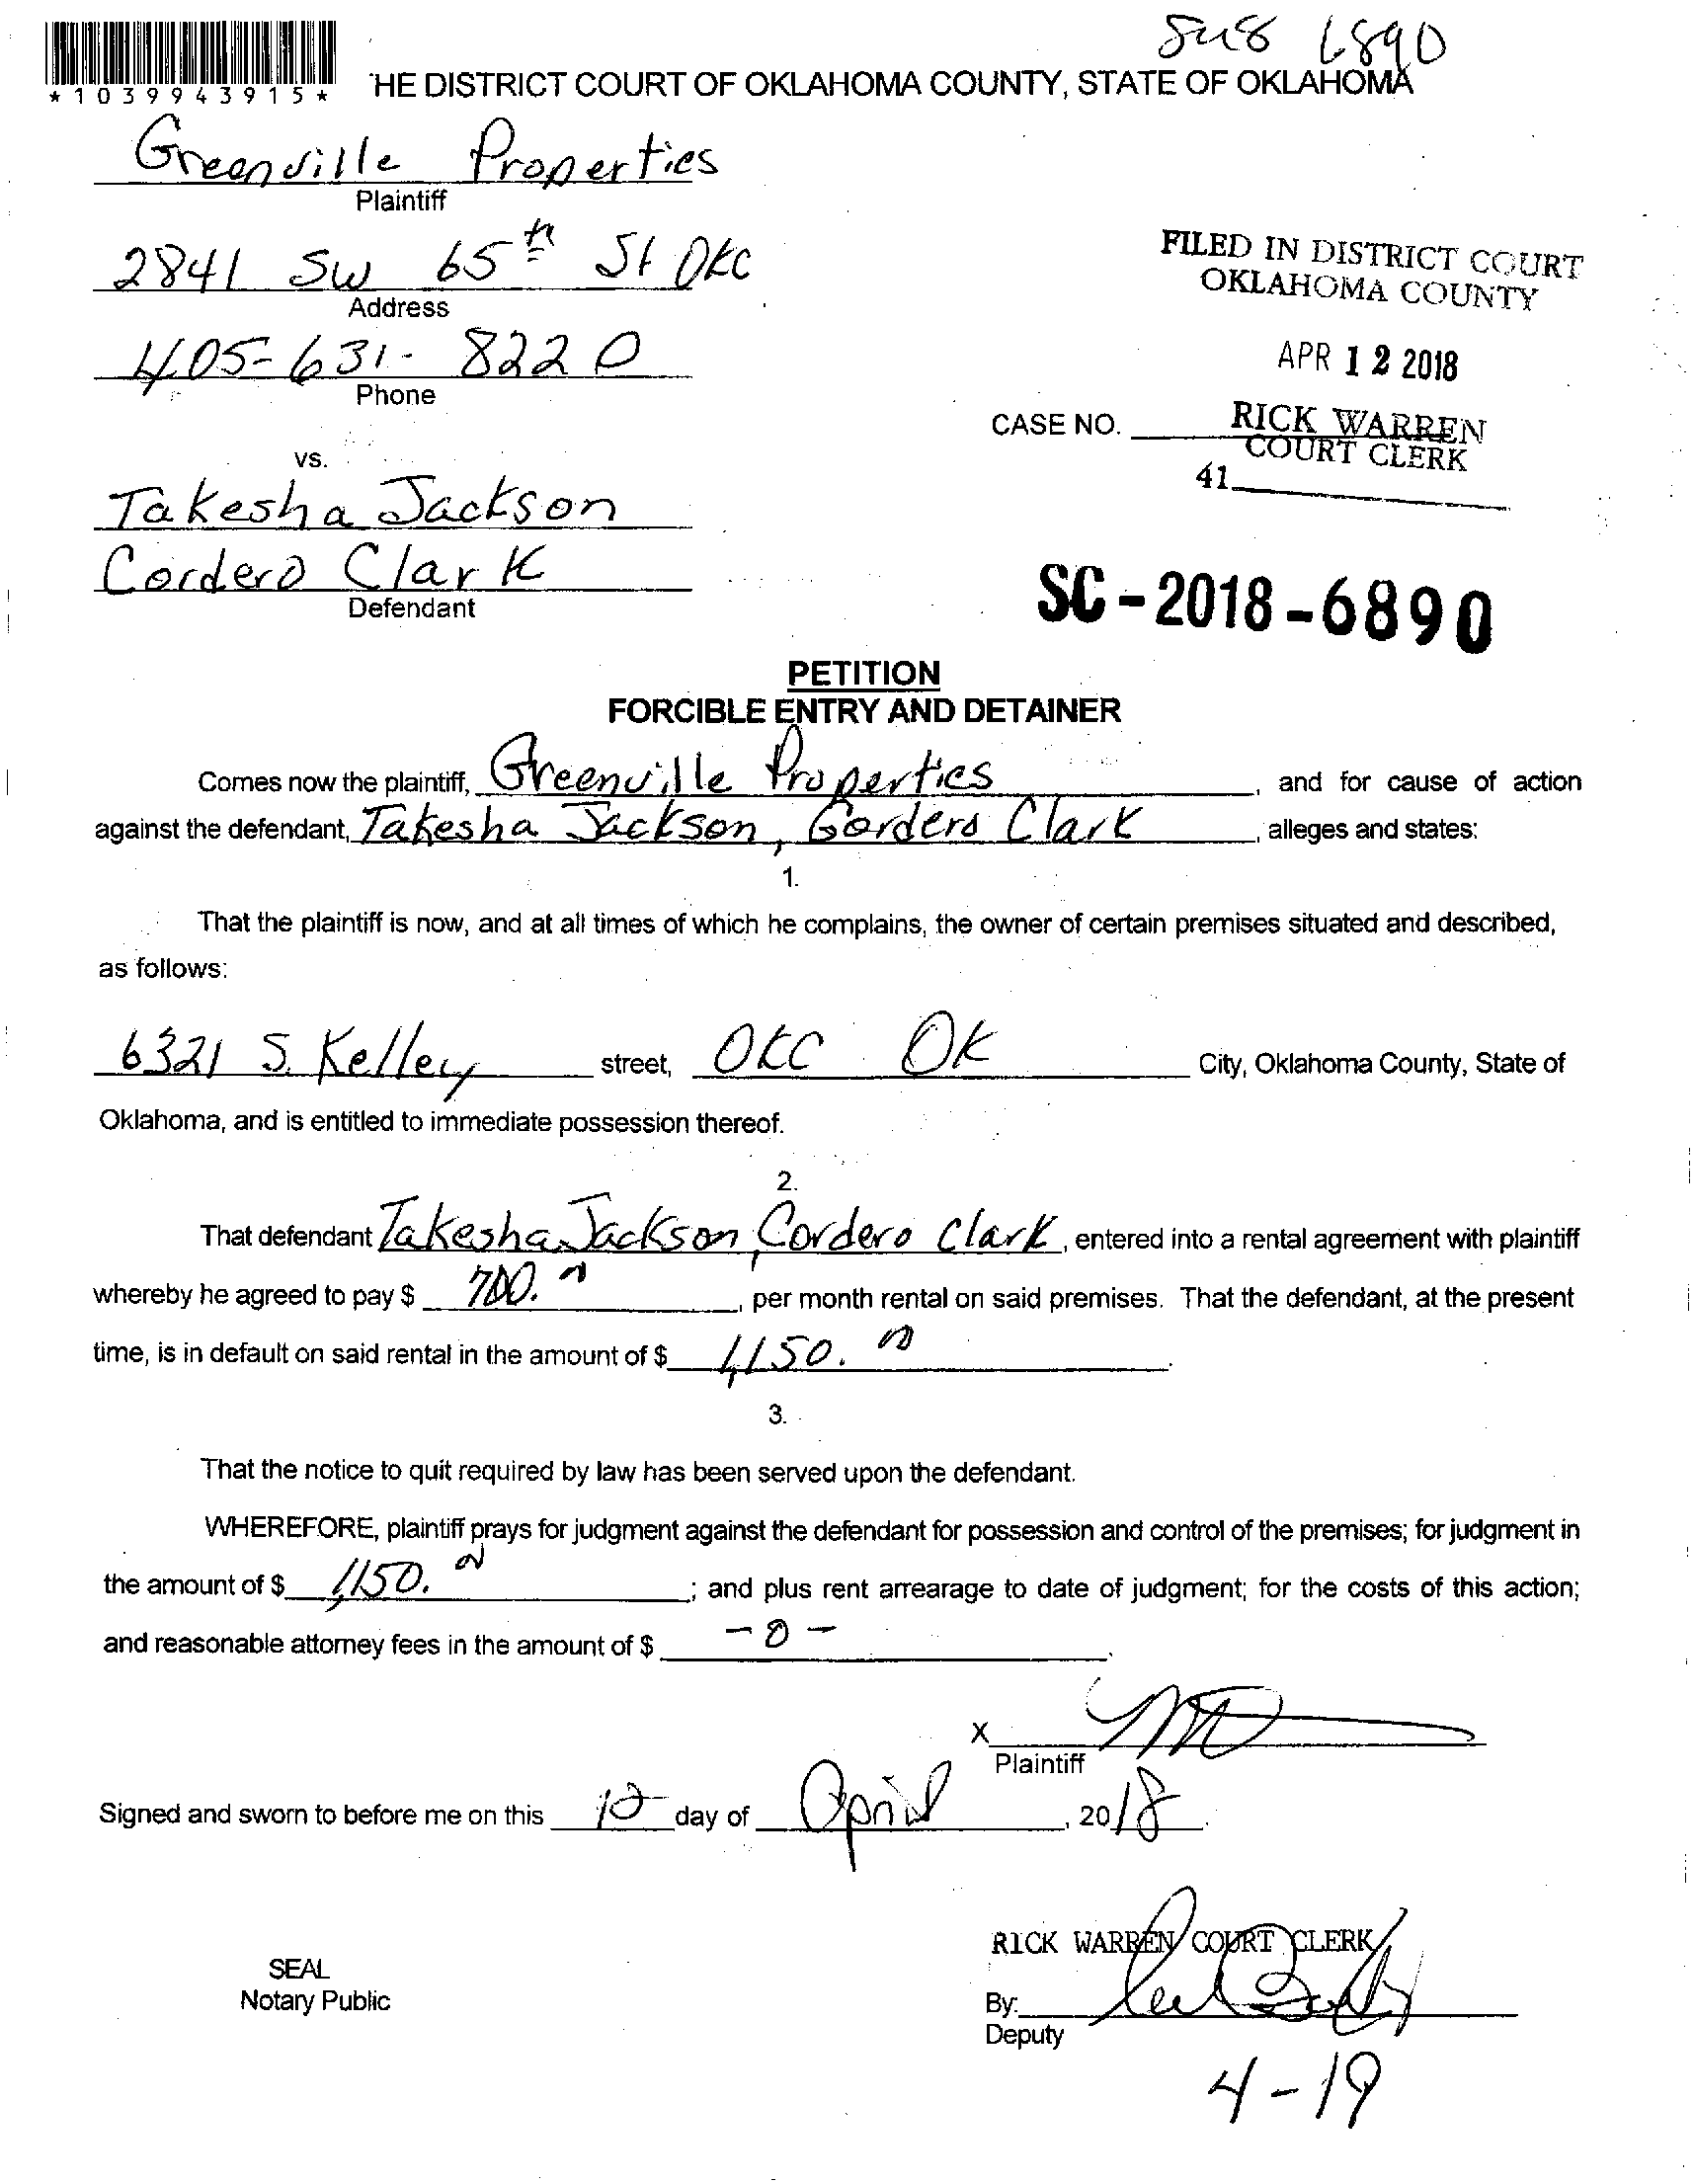 6890
*1039943915*
HE DISTRICT COURT OF OKLAHOMA COUNTY, STATE OF OKLAHOMA
Greenville Properties
Plaintiff
2841 SW 65th St OKC
Address
FILED IN DISTRICT COURT
OKLAHOMA COUNTY
405-631-8220
Phone
APR 12 2018
CASE NO.
RICK WARREN
COURT CLERK
41
vs.
Takesha Jackson
Cordero Clark
Defendant
SC-2018-6890
PETITION
FORCIBLE ENTRY AND DETAINER
Comes now the plaintiff, Greenville Properties, and for cause of action
against the defendant, Takesha Jackson, Cordero Clark, alleges and states:
1.
That the plaintiff is now, and at all times of which he complains, the owner of certain premises situated and described,
as follows:
6321 S. Kelley street, OKC OK City, Oklahoma County, State of
Oklahoma, and is entitled to immediate possession thereof.
2.
That defendant Takesha Jackson, Cordero Clark, entered into a rental agreement with plaintiff
whereby he agreed to pay $ 700. , per month rental on said premises. That the defendant, at the present
time, is in default on said rental in the amount of $ 1,150. .
3.
That the notice to quit required by law has been served upon the defendant.
WHEREFORE, plaintiff prays for judgment against the defendant for possession and control of the premises; for judgment in
the amount of $ 1,150. ; and plus rent arrearage to date of judgment; for the costs of this action;
and reasonable attorney fees in the amount of $ -0- .
X
Plaintiff
Signed and sworn to before me on this 12 day of April, 2018.
RICK WARREN COURT CLERK
SEAL
Notary Public
By:
Deputy
4-19